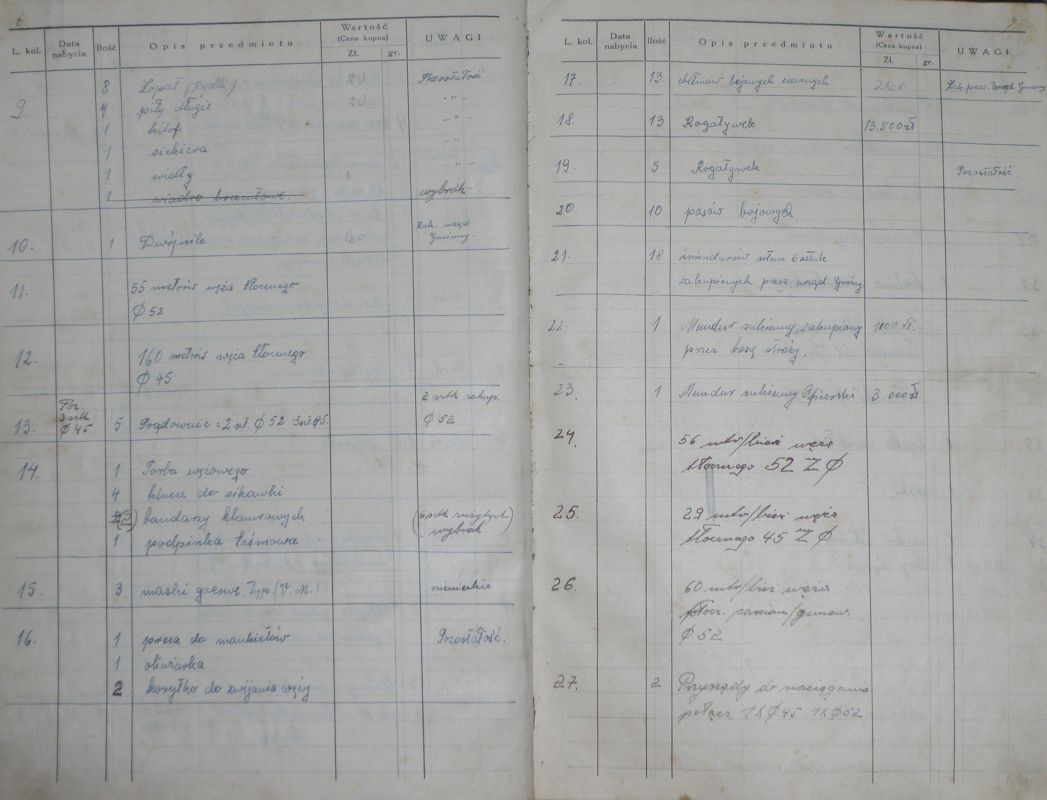 6
L. kol. Data nabycia Ilość Opis przedmiotu Wartość (Cena kupna) Zł. gr. UWAGI
9 8 Łopat 20 Pozostałość
4 piły długie -"-
1 kilof -"-
1 siekiera -"-
1 widły -"-
1 wiadro wybrak
10. 1 60 Zak. urząd Gminny.
11. 55 metrów węża tłocznego
Ø 52
12. 160 metrów węża tłocznego
Ø 45
13. 3 szt Ø 45 5 Prądownic: 2 szt. Ø 52 3 szt 45. 2 sztk zakup. Ø 52
14. 1 Torba wężowego
4 klucze do sikawki
(2) bandarzy klamrowych (6 sztk zużytych) wybrak
1 podpinka taśmowa
15. 3 maski gazowe Typ. (V. M.) niemieckie
16. 1 prasa do mankietów Pozostałość.
1 oliwiarka
2 korytko do zwijania węży
7
L. kol. Data nabycia Ilość Opis przedmiotu Wartość (Cena kupna) Zł. gr. UWAGI
17. 13. chełmów bojowych czarnych Zak. przez Urząd Gminny
18. 13 Rogatywek 13.500 zł
19. 5 Rogatywek Pozostałość.
20. 10 pasów bojowych
21. 18 mundurów 6 sztuk
zakupionych przez urząd. Gminny.
22. 1 Mundur sukienny, zakupiony zł.
przez kasę straży.
23. 1 Mundur sukienny 3.000 zł
24. 56 mtr/bież węża
tłocznego 52 Ø
25. 29 mtr/bież węża
tłocznego 45 Ø
26 60 mtr/bież węża
tłocz. parcian/gumow.
Ø 52
27. 2 Przyrządy do naciągania
połącz 1 x Ø 45 1 x Ø 52